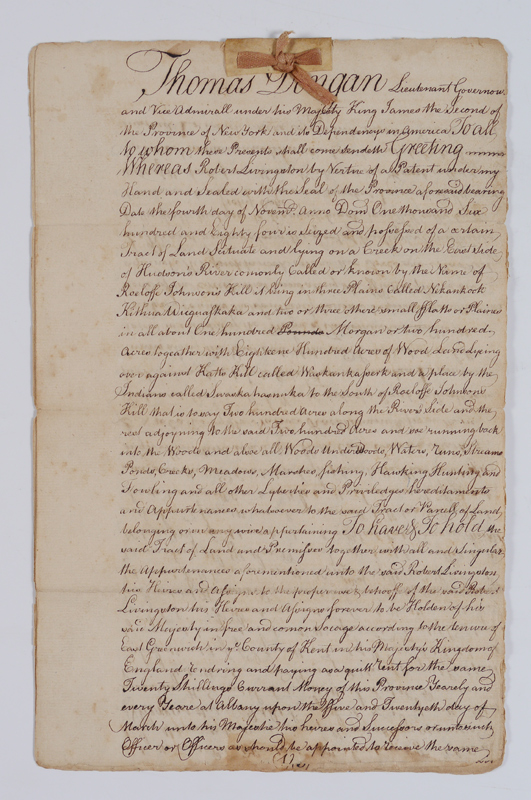 Thomas Dongan Lieutenant Governour
and Vice Admirall under his Majesty King James the Second of
the Province of New York and its Dependencys in America To all
to whom these Presents shall come sendeth Greeting
Whereas Robert Livingston by Virtue of a Patent under my
Hand and Sealed with the Seal of the Province aforesaid bearing
Date the fourth day of Novemr. Anno Dom One thousand Six
hundred and Eighty four is Seized and possessed of a certain
Tract of Land Scituate and lying on a Creek on the East Side
of Hudson's River comonly Called or known by the Name of
Roeloffe Johnson's Kill it being in three Plains Called Nekankook
Kickua and two or three other small fflatts or Plaines
in all about One hundred Pounds Morgan or two hundred
Acres together with Eighteene Hundred Acres of Wood Land Lying
over against Katts Kill called Waskankasseck and a place by the
Indians called Swaskahasnuka to the South of Roeloffe Johnsons
Kill that is to say Two hundred Acres along the River Side and the
rest adjoyning to the said Two hundred Acres and soe running back
into the Woods and alsoe all Woods Underwoods, Waters, Runs, Streams
Ponds, Creeks, Meadows, Marshes, fishing, Hawking Hunting and
Fowling and all other Lyberties and Priviledges hereditaments
and Appurtenances whatsoever to the said Tract or Parcell of Land
belonging or in any wise appertaining To have & To hold the
said Tract of Land and Premisses together with all and Singular
the Appurtenances aforementioned unto the said Robert Livingston
his Heires and Assigns to the proper use & behooff of the said Robert
Livingston his Heires and Assigns forever to be Holden of his
said Majesty in free and comon Socage according to the tenure of
East Greenwich in ye County of Kent in his Majestys Kingdom of
England rendring and paying as a quitt rent for the same
Twenty Shillings Currant Money of this Province Yearely and
every Yeare at Albany upon the ffive and Twentyeth day of
March unto his Majestie his heires and Successors or unto such
Officer or Officers as should be appointed to receive the same